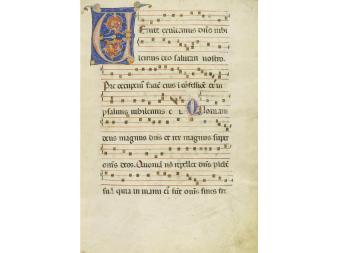 Venite exultemus dño iubi
lemus deo salutari nostro.
Pre occupem faciē eius ī cōfessiōē et in
psalmis iubilemus e i. Quoniam
deus magnus dñs et rex magnus super
omīs deos. Quoniā nō repellet dñs plebē
suā quia in manu ei sūt omīs fines ter